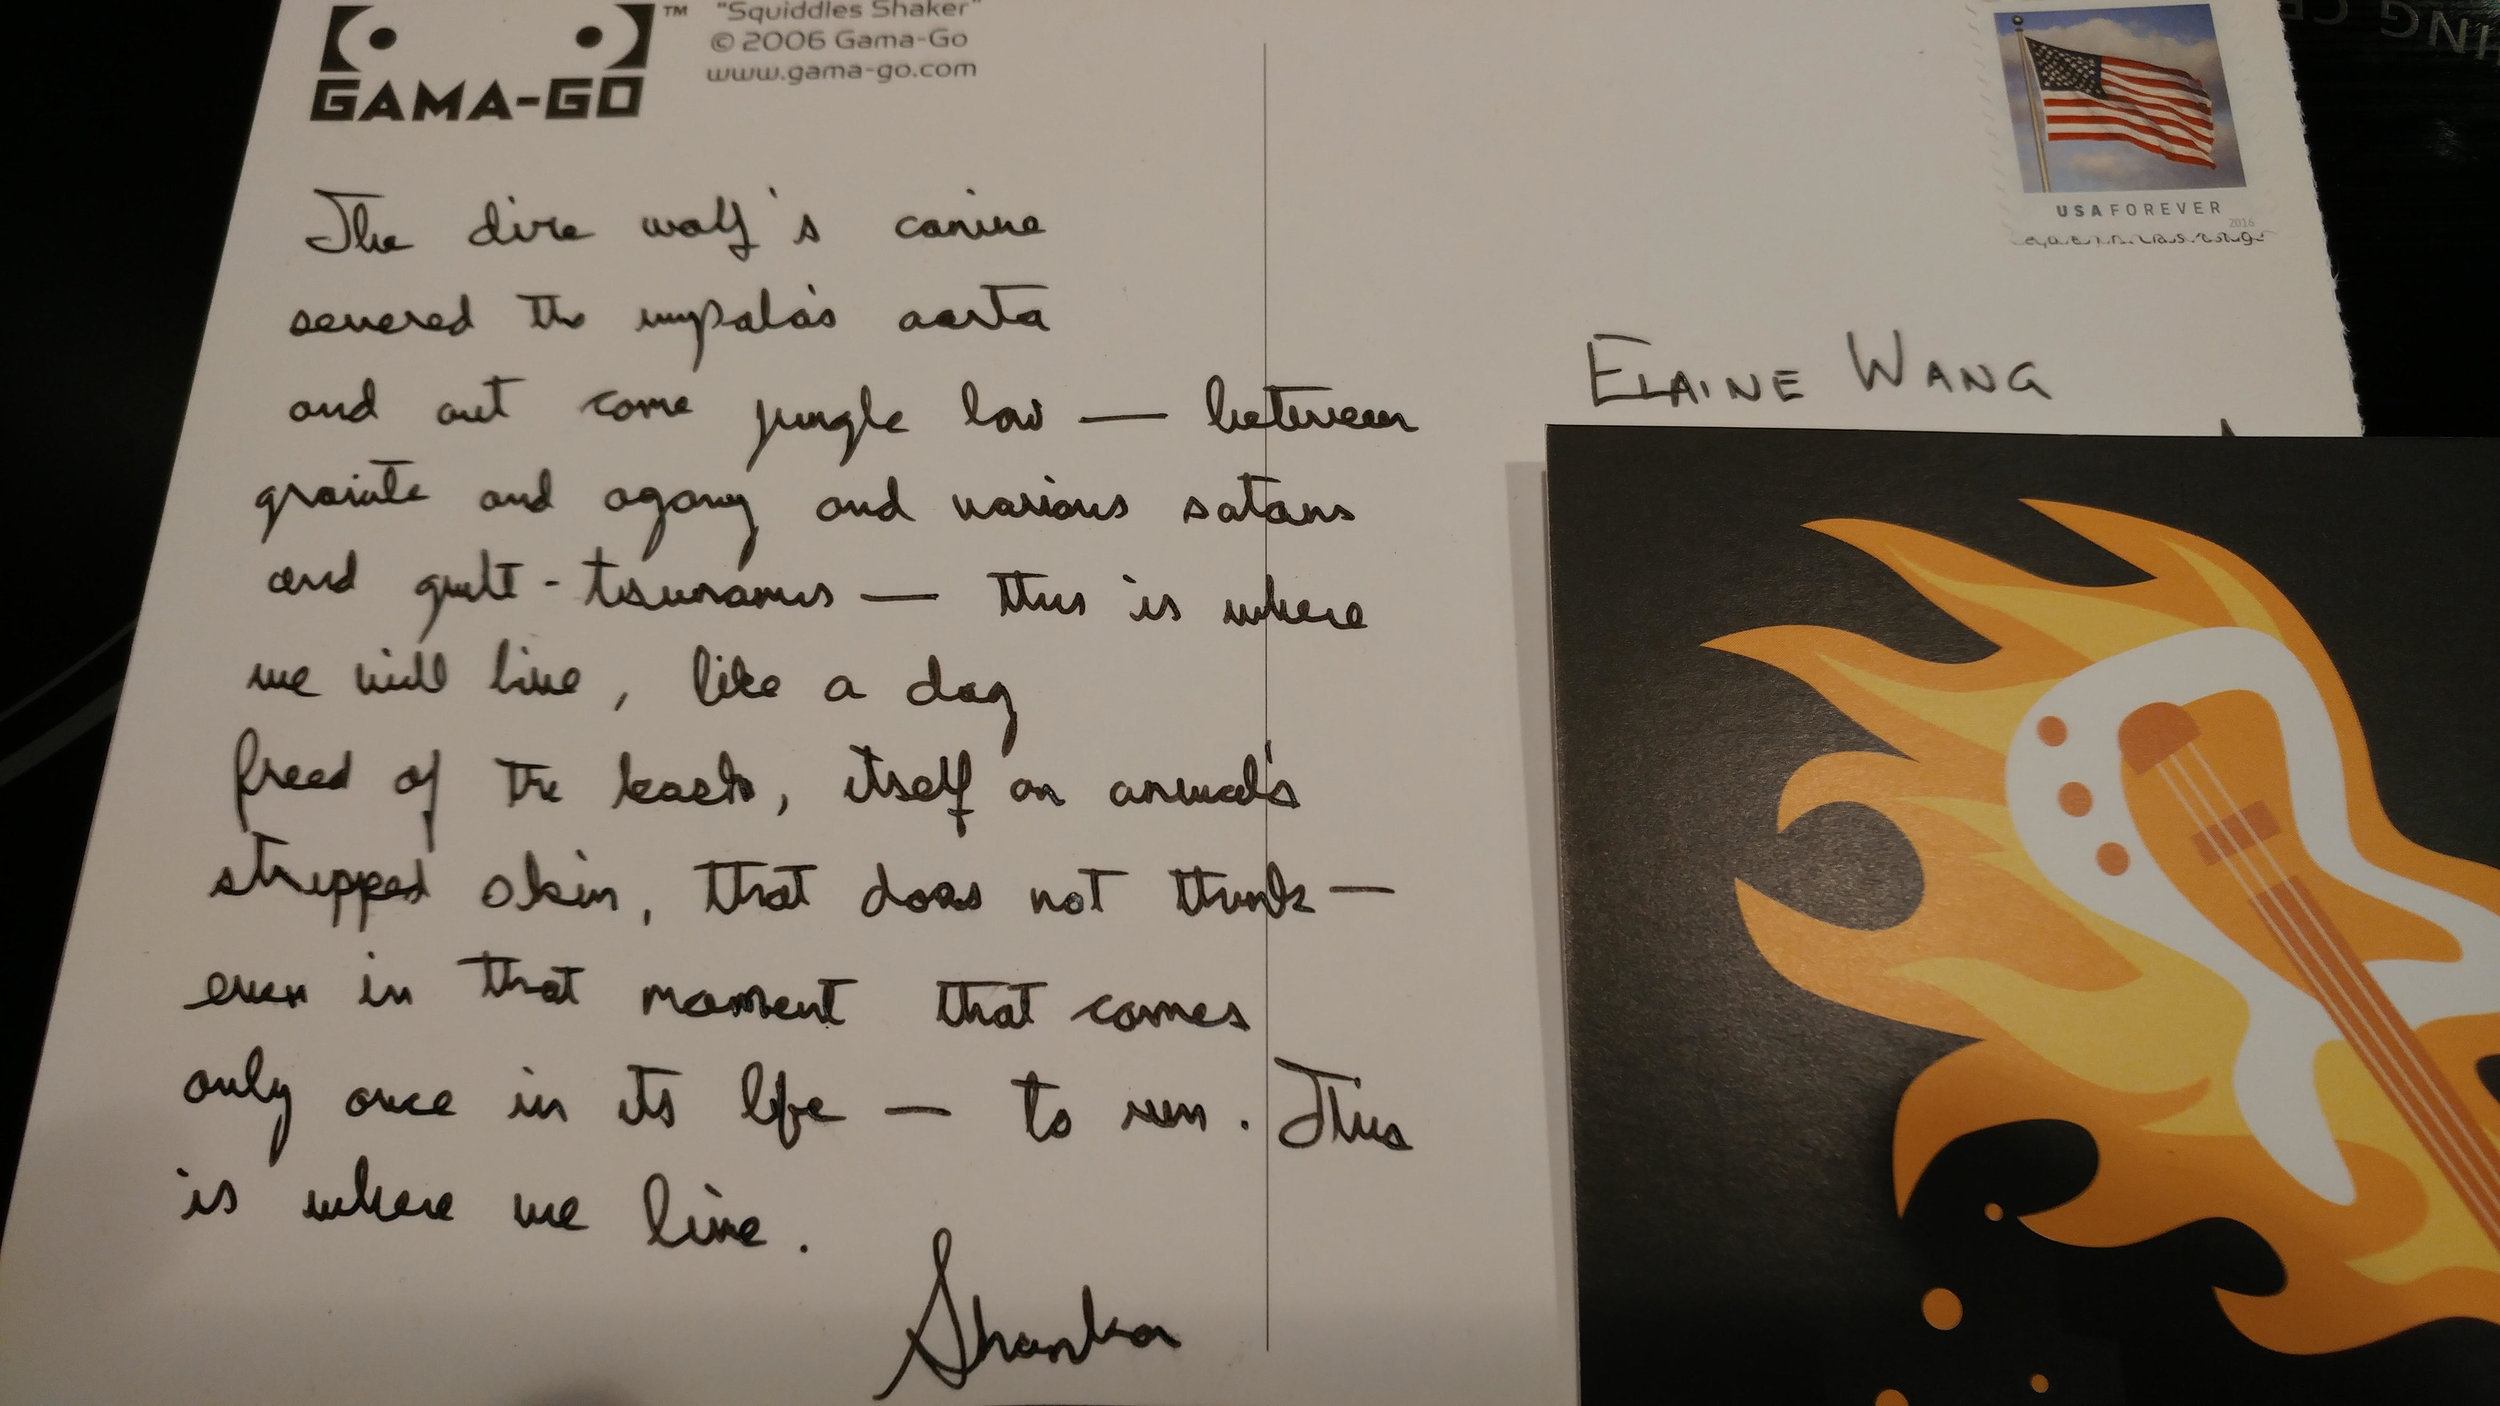 GAMA-GO
™
"Squiddles Shaker"
© 2006 Gama-Go
www.gama-go.com
The dire wolf's canine
severed the impala's aorta
and out come jungle law — between
granite and agony and various satans
and guilt-tsunamis — this is where
we will live, like a dog
freed of the leash, itself an animal's
stripped skin, that does not think —
even in that moment that comes
only once in its life — to run. This
is where we live.
Shankar
USA FOREVER
2016
ELAINE WANG